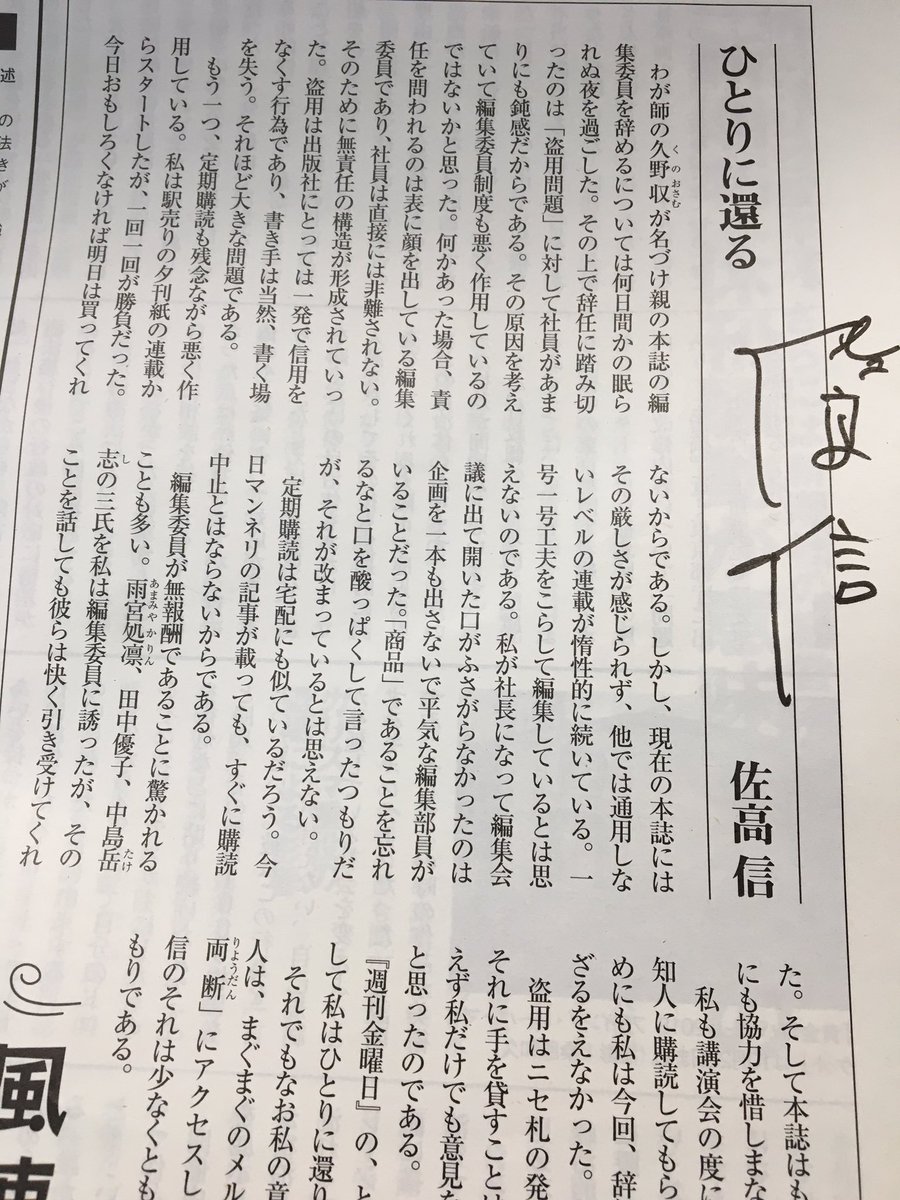 ひとりに還る
佐高 信
わが師の久野収が名づけ親の本誌の編
くの おさむ
集委員を辞めるについては何日間かの眠ら
れぬ夜を過ごした。その上で辞任に踏み切
ったのは「盗用問題」に対して社員があま
りにも鈍感だからである。その原因を考え
ていて編集委員制度も悪く作用しているの
ではないかと思った。何かあった場合、責
任を問われるのは表に顔を出している編集
委員であり、社員は直接には非難されない。
そのために無責任の構造が形成されていっ
た。盗用は出版社にとっては一発で信用を
なくす行為であり、書き手は当然、書く場
を失う。それほど大きな問題である。
もう一つ、定期購読も残念ながら悪く作
用している。私は駅売りの夕刊紙の連載か
らスタートしたが、一回一回が勝負だった。
今日おもしろくなければ明日は買ってくれ
ないからである。しかし、現在の本誌には
その厳しさが感じられず、他では通用しな
いレベルの連載が惰性的に続いている。一
号一号工夫をこらして編集しているとは思
えないのである。私が社長になって編集会
議に出て開いた口がふさがらなかったのは
企画を一本も出さないで平気な編集部員が
いることだった。「商品」であることを忘れ
るなと口を酸っぱくして言ったつもりだ
が、それが改まっているとは思えない。
定期購読は宅配にも似ているだろう。今
日マンネリの記事が載っても、すぐに購読
中止とはならないからである。
編集委員が無報酬であることに驚かれる
ことも多い。雨宮処凛、田中優子、中島岳
あまみや かりん たけ
志の三氏を私は編集委員に誘ったが、その
し
ことを話しても彼らは快く引き受けてくれ
た。そして本誌はも
にも協力を惜しまな
私も講演会の度に
知人に購読してもら
めにも私は今回、辞
ざるをえなかった。
盗用はニセ札の発
それに手を貸すことは
えず私だけでも意見を
と思ったのである。
『週刊金曜日』の、と
して私はひとりに還り
それでもなお私の意
人は、まぐまぐのメル
両断」にアクセスし
りょうだん
信のそれは少なくとも
もりである。
風